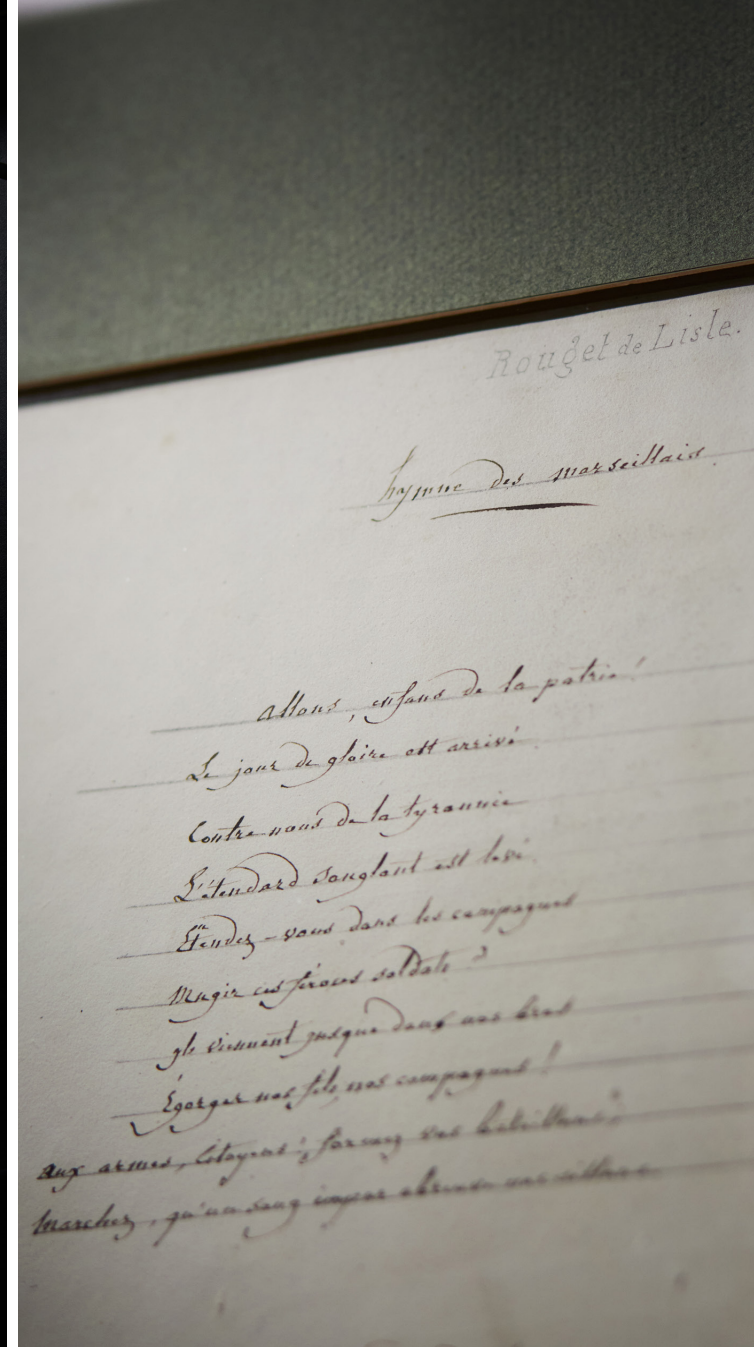 Rouget de Lisle.
hymne des marseillais.
Allons, enfans de la patrie !
Le jour de gloire est arrivé
Contre nous de la tyrannie
L'étendard sanglant est levé
Entendez-vous dans les campagnes
Mugir ces féroces soldats ?
Ils viennent jusque dans vos bras
Égorger vos fils, vos compagnes !
aux armes, Citoyens ! formez vos bataillons ;
Marchez, qu'un sang impur abreuve nos sillons.